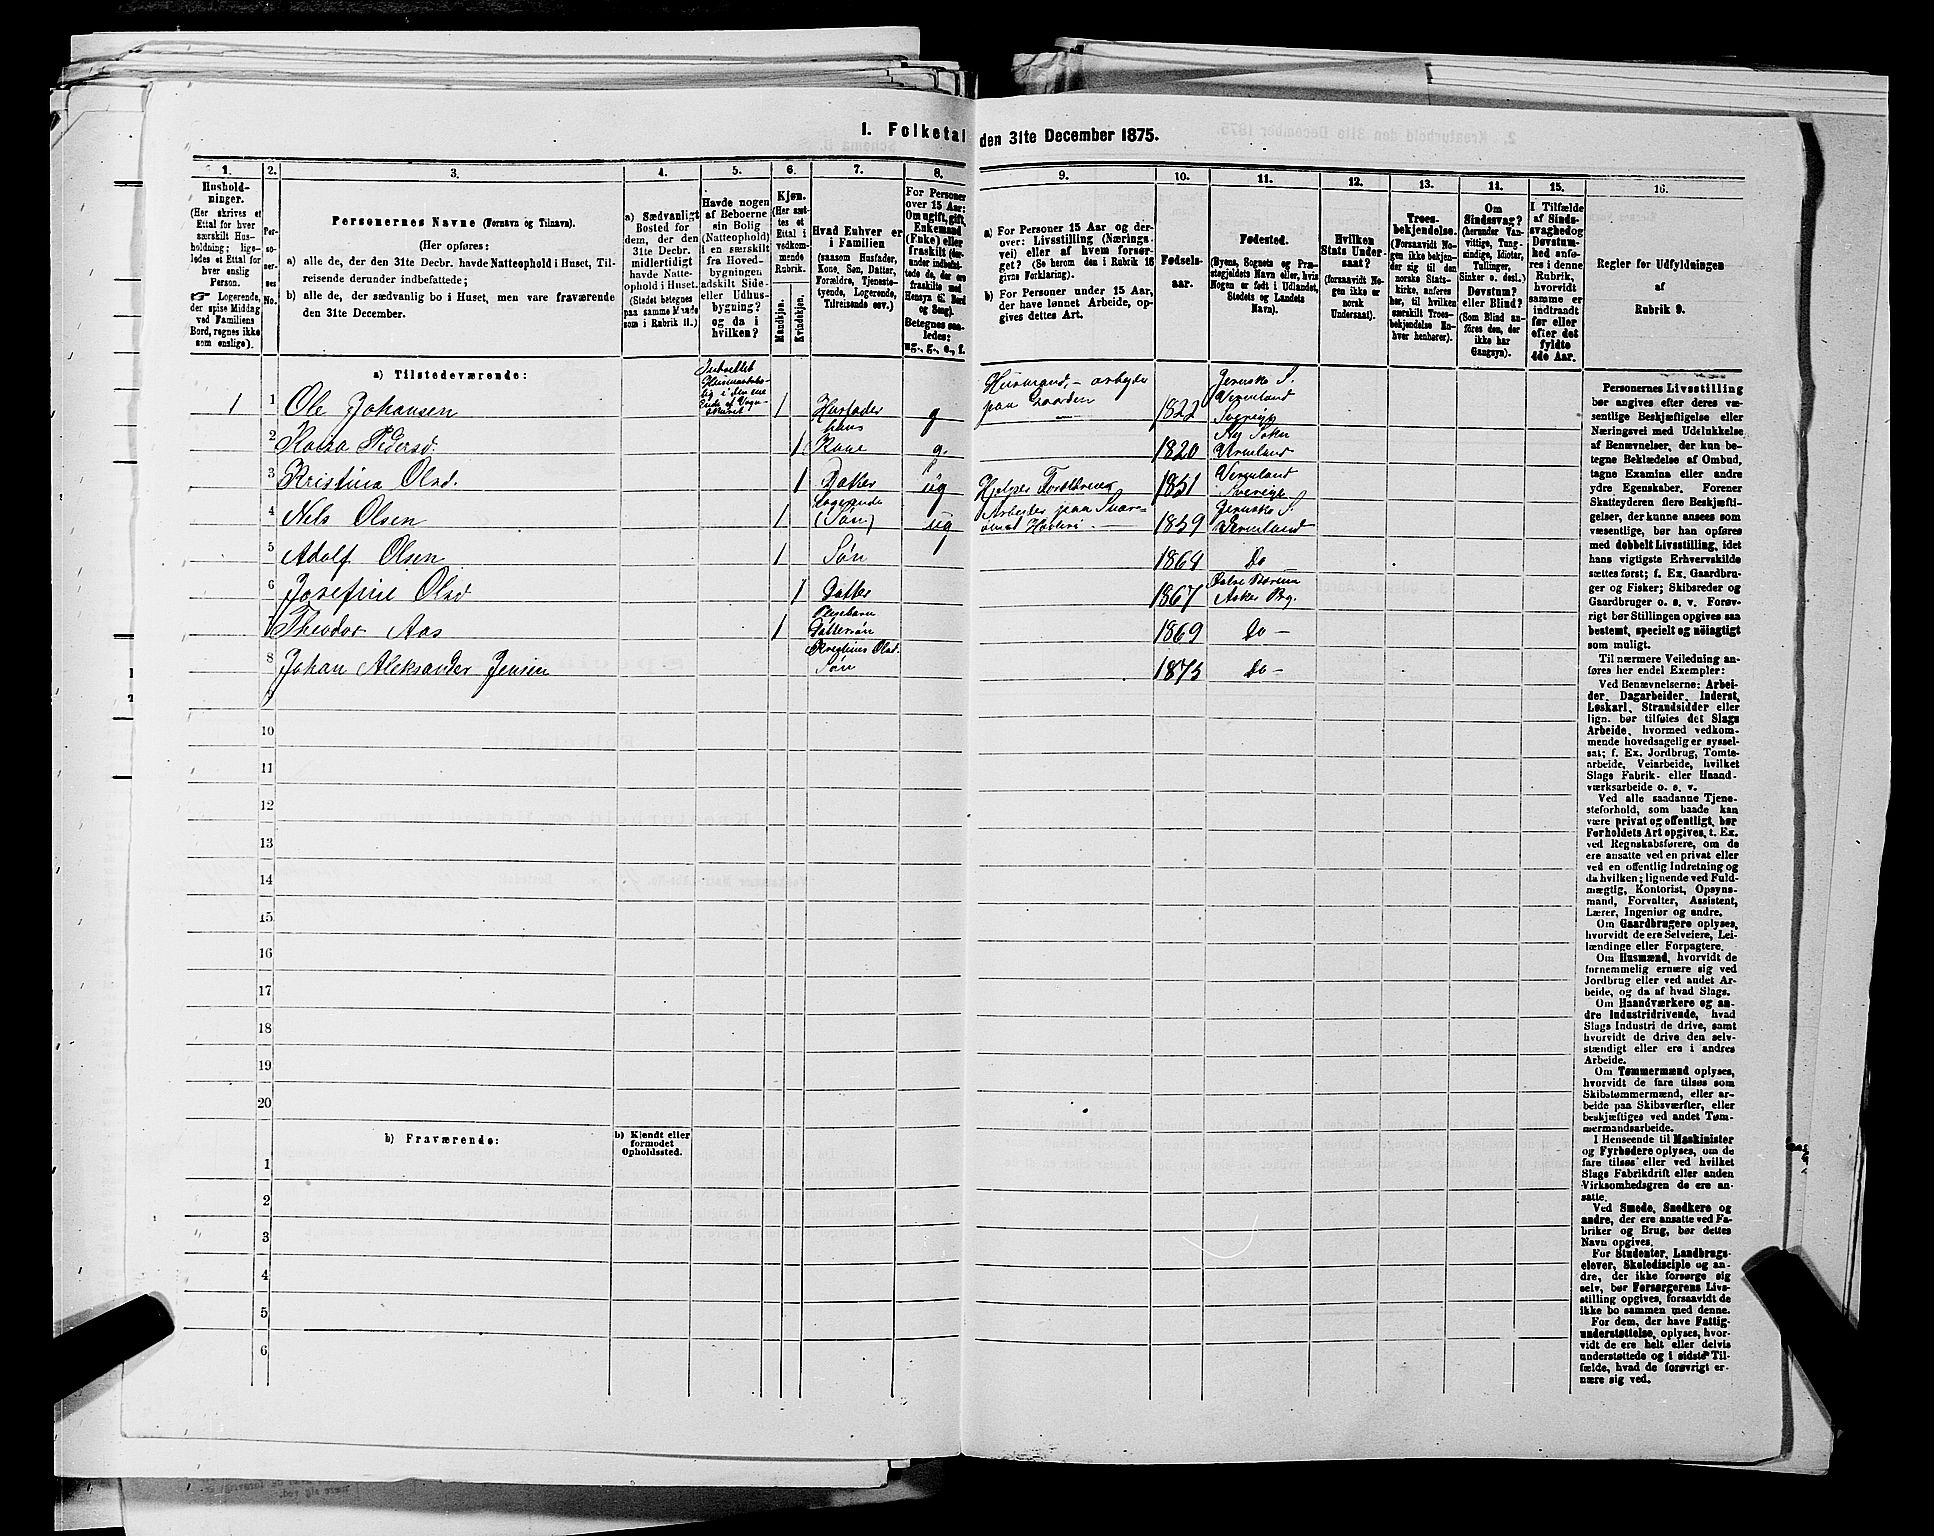 I. Folketal den 31te December 1875.
1. 2. 3. 4. 5. 6. 7. 8. 9. 10. 11. 12. 13. 14. 15. 16.
Hushold-
ninger.
(Her skrives et
Ettal for hver
særskilt Hus-
holdning; lige-
ledes et Ettal for
hver enslig
Person.
☞ Logerende,
der spise Middag
ved Familiens
Bord, regnes ikke
som enslige).
Per-
so-
ner-
nes
No.
Personernes Navne (Fornavn og Tilnavn).
(Her opføres:
a) alle de, der den 31te Decbr. havde Natteophold i Huset, Til-
reisende derunder indbefattede;
b) alle de, der sædvanlig bo i Huset, men vare fraværende
den 31te December.
a) Sædvanligt
Bosted for
dem, der den
31te Decbr.
midlertidigt
havde Natte-
ophold i Huset.
(Stedet betegnes
paa samme Maade
som i Rubrik 11.)
Havde nogen
af Beboerne
sin Bolig
(Natteophold)
i en særskilt
fra Hoved-
bygningen
adskilt Side-
eller Udhus-
bygning?
og da i
hvilken?
Kjøn.
(Her sæt-
tes et
Ettal i
vedkom-
mende
Rubrik.
Mandkjøn.
Kvindekjøn.
Hvad Enhver er
i Familien
(saasom Husfader,
Kone, Søn, Datter,
Forældre, Tjeneste-
tyende, Logerende,
Tilreisende osv.)
For Personer
over 15 Aar:
Om ugift, gift,
Enkemand
(Enke) eller
fraskilt (der-
under indbefat-
tede de, der ere
fraskilte med
Hensyn til Bord
og Seng).
Betegnes saa-
ledes:
ug., g., e., f.
a) For Personer 15 Aar og der-
over: Livsstilling (Nærings-
vei) eller af hvem forsør-
get? (Se herom den i Rubrik 16
givne Forklaring).
b) For Personer under 15 Aar,
der have lønnet Arbeide, op-
gives dettes Art.
Fødsels-
aar.
Fødested.
(Byens, Sognets og Præ-
stegjeldets Navn eller, hvis
Nogen er født i Udlandet,
Stedets og Landets
Navn).
Hvilken
Stats Under-
saat?
(forsaavidt No-
gen ikke er
norsk
Undersaat).
Troes-
bekjendelse.
(Forsaavidt No-
gen ikke bekjen-
der sig til den
norske Stats-
kirke, anføres
her, til hvilken
særskilt Troes-
bekjendelse En-
hver henhører).
Om
Sindssvag?
(herunder Van-
vittige, Tung-
sindige, Idioter,
Tullinger,
Sinker o. desl.)
Døvstum?
eller Blind?
(Som Blind an-
føres den, der
ikke har
Gangsyn).
I Tilfælde
af Sinds-
svaghed og
Døvstum-
hed anfø-
res i denne
Rubrik,
hvorvidt
samme er
indtraadt
før eller
efter det
fyldte
4de Aar.
Regler for Udfyldningen
af
Rubrik 9.
a) Tilstedeværende:
1 1 Ole Johansen 1 Husfader g Husmand, – arbeyde paa Gaarden 1822 Sverige
2 Pedersd. 1 hans Kone g. 1820 Vermland
3 Kristina Olsd. 1 Datter ug Hjelper Forældrene 1851 Vermland Sverige
4 Nels Olsen 1 Logerende (Søn) ug Arbeider paa 1859 Vermland
5 Adolf Olsen 1 Søn 1864 Do
6 Josefine Olsd 1 Datter 1867 Asker Prg.
7 Theodor Aas 1 Pleiebarn Dattersøn 1869 Do –
8 Johan Aleksander Jensen Olsd. Søn 1875 Do –
9
10
11
12
13
14
15
16
17
18
19
20
b) Fraværende:
b) Kjendt eller
formodet
Opholdssted.
1
2
3
4
5
6
Personernes Livsstilling
bør angives efter deres væ-
sentlige Beskjæftigelse eller
Næringsvei med Udelukkelse
af Benævnelser, der kun be-
tegne Beklædelse af Ombud,
tagne Examina eller andre
ydre Egenskaber. Forener
Skatteyderen flere Beskjæfti-
gelser, der kunne ansees som
væsentlige, bør han opføres
med dobbelt Livsstilling, idet
hans vigtigste Erhvervskilde
sættes først; f. Ex. Gaardbru-
ger og Fisker; Skibsreder og
Gaardbruger o. s. v. Forøv-
rigt bør Stillingen opgives saa
bestemt, specielt og nøiagtigt
som muligt.
Til nærmere Veiledning an-
føres her endel Exempler:
Ved Benævnelserne: Arbei-
der, Dagarbeider, Inderst,
Løskarl, Strandsidder eller
lign. bør tilføies det Slags
Arbeide, hvormed vedkom-
mende hovedsagelig er syssel-
sat; f. Ex. Jordbrug, Tomte-
arbeide, Veiarbeide, hvilket
Slags Fabrik- eller Haand-
værksarbeide o. s. v.
Ved alle saadanne Tjene-
steforhold, som baade kan
være privat og offentligt, bør
Forholdets Art opgives, t. Ex.
ved Regnskabsførere, om de
ere ansatte ved en privat eller
ved en offentlig Indretning og
da hvilken; lignende ved Fuld-
mægtig, Kontorist, Opsyns-
mand, Forvalter, Assistent,
Lærer, Ingeniør og andre.
Om Gaardbrugere oplyses,
hvorvidt de ere Selveiere, Lei-
lændinge eller Forpagtere.
Om Husmænd, hvorvidt de
fornemmelig ernære sig ved
Jordbrug eller ved andet Ar-
beide, og da af hvad Slags.
Om Haandværkere og an-
dre Industridrivende, hvad
Slags Industri de drive, samt
hvorvidt de drive den selv-
stændigt eller ere i andres
Arbeide.
Om Tømmermænd oplyses,
hvorvidt de fare tilsøs som
Skibstømmermænd, eller ar-
beide paa Skibsværfter, eller
beskjæftiges ved andet Tøm-
mermandsarbeide.
I Henseende til Maskinister
og Fyrbødere oplyses, om de
fare tilsøs eller ved hvilket
Slags Fabrikdrift eller anden
Virksomhedsgren de ere an-
satte.
Ved Smede, Snedkere og
andre, der ere ansatte ved Fa-
briker og Brug, bør dettes
Navn opgives.
For Studenter, Landbrugs-
elever, Skoledisciple og an-
dre, der ikke forsørge sig
selv, bør Forsørgerens Livs-
stilling opgives, forsaavidt de
ikke bo sammen med denne.
For dem, der have Fattig-
understøttelse, oplyses, hvor-
vidt de ere helt eller delvis
understøttede og i sidste Til-
fælde, hvad de forøvrigt er-
nære sig ved.